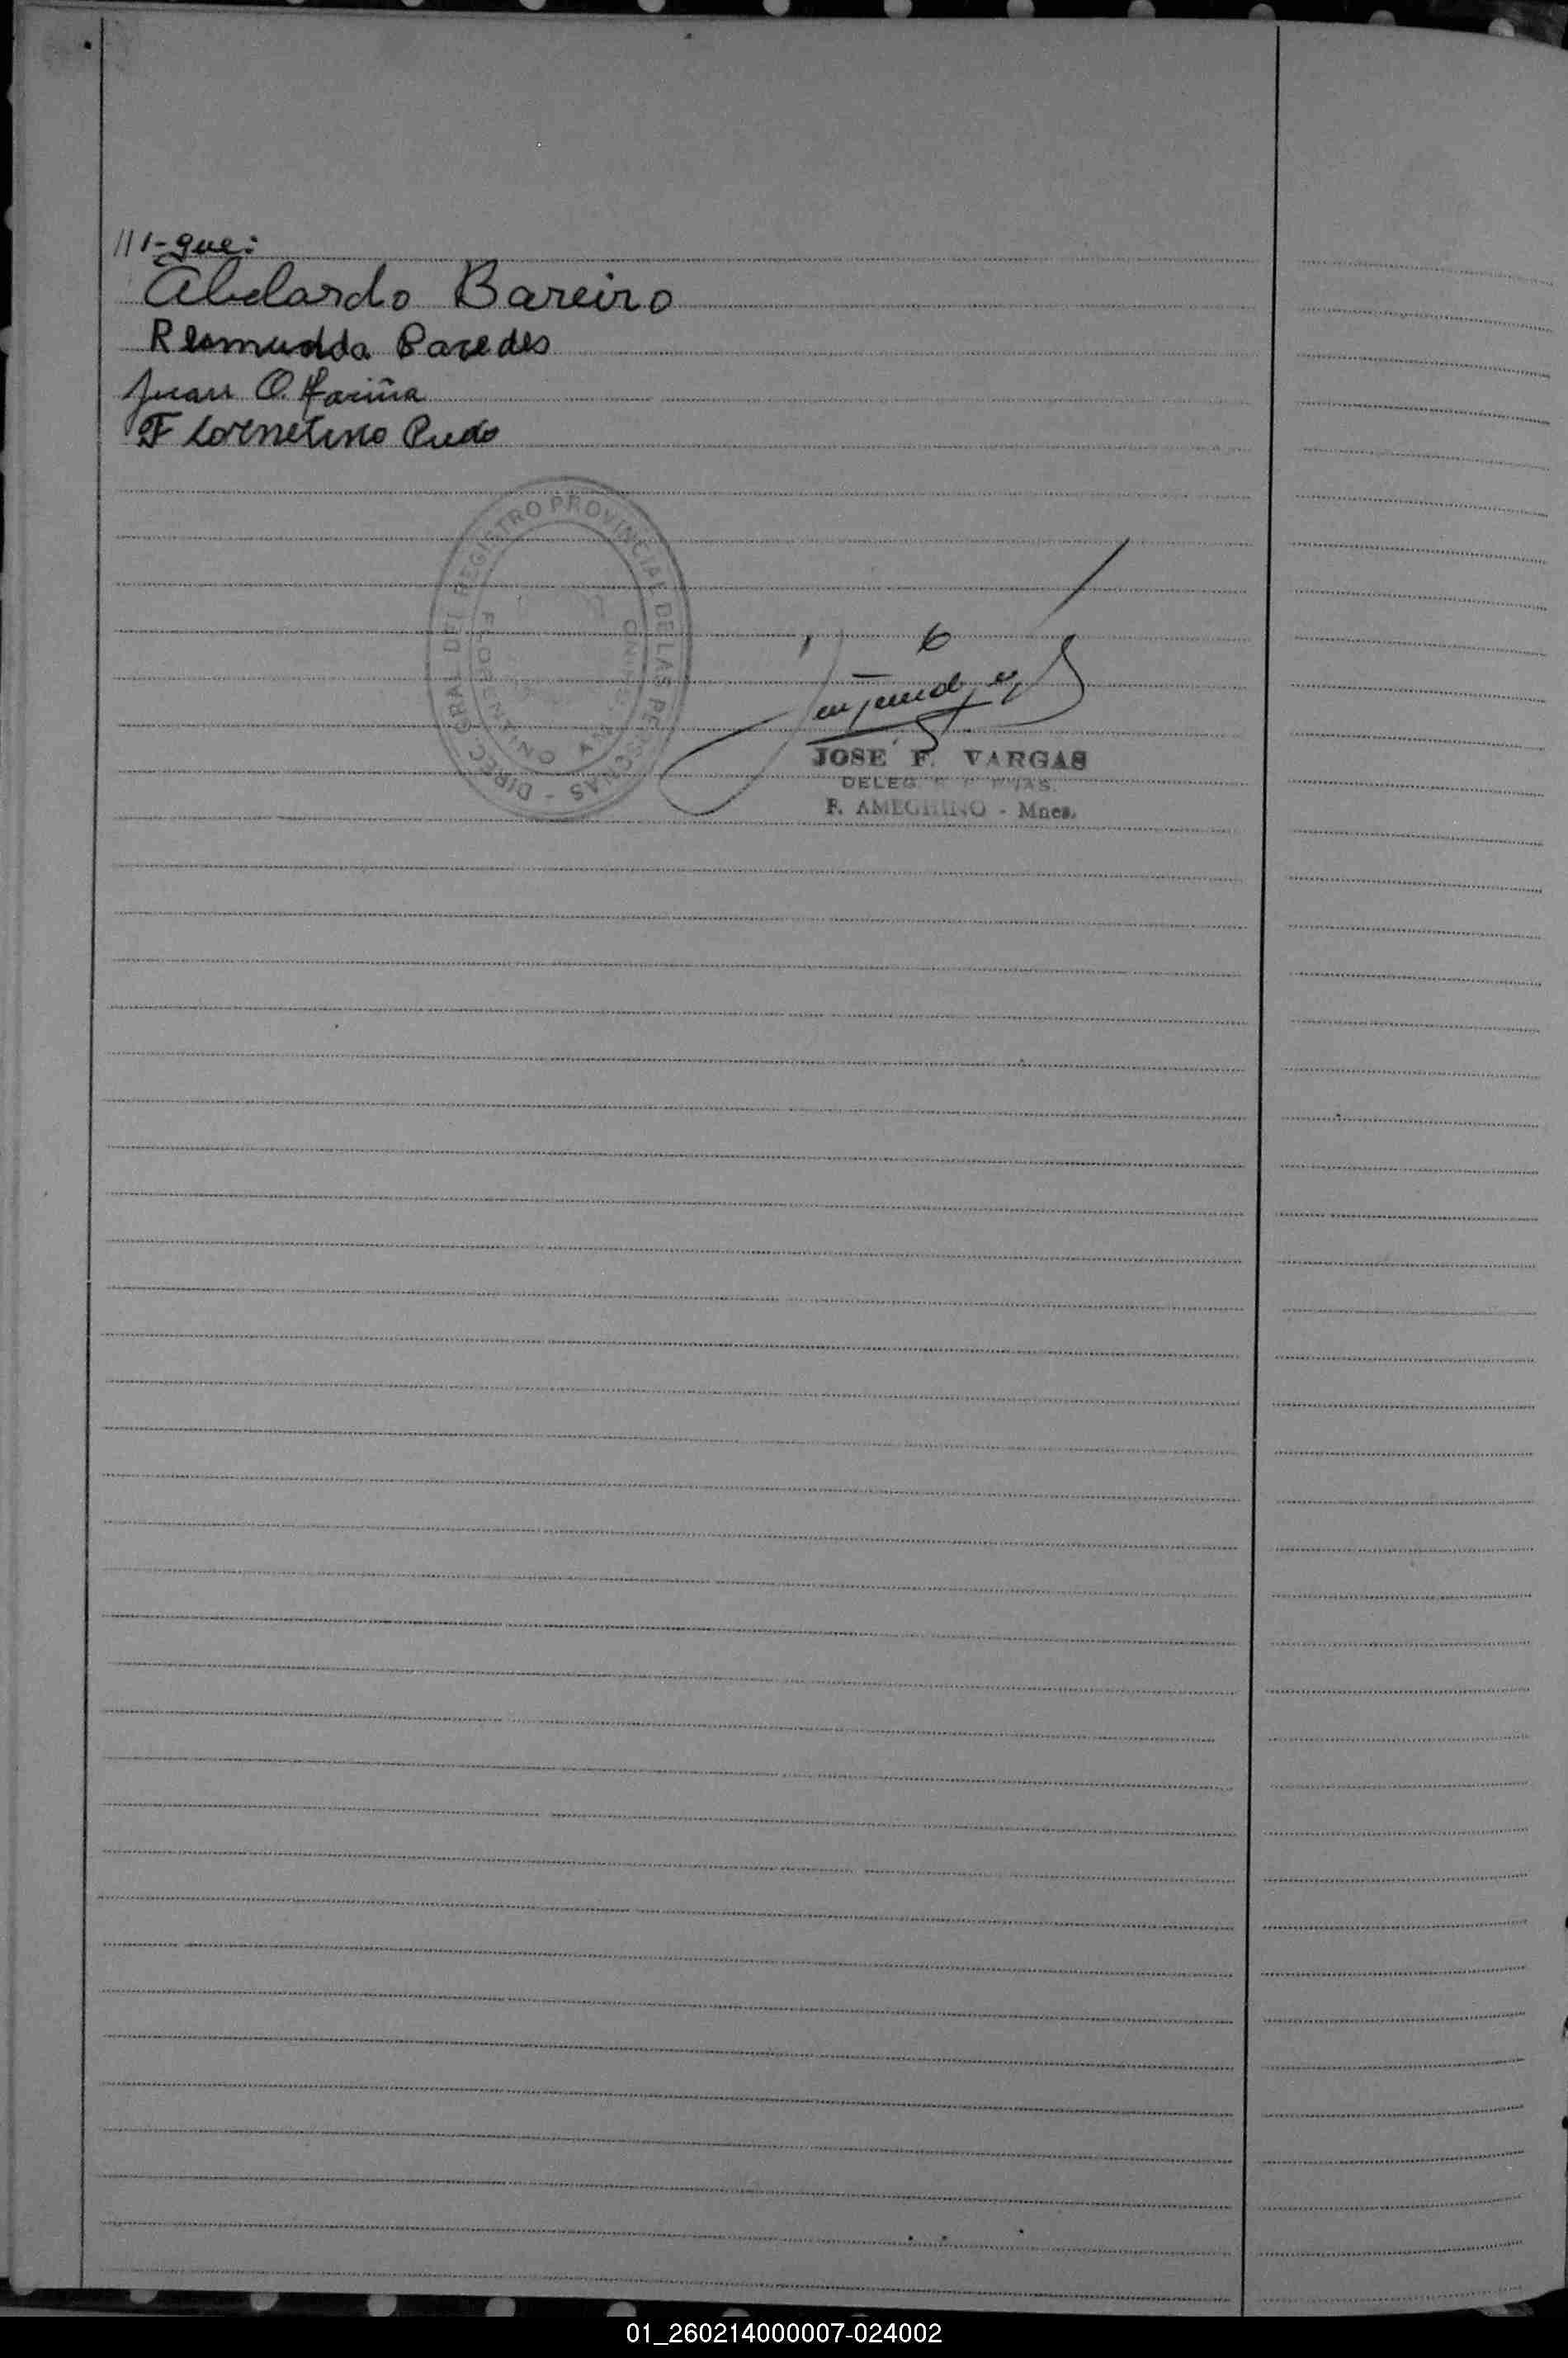 ///-gue:
Abelardo Bareiro
Resmudda Paredes
Juan O. Fariña
Flornetino Predo
DIREC. GRAL. DEL REGISTRO PROVINCIAL DE LAS PERSONAS -
FLORENTINO AMEGHINO
JOSE F. VARGAS
DELEG.
F. AMEGHINO - Mnes.
01_260214000007-024002